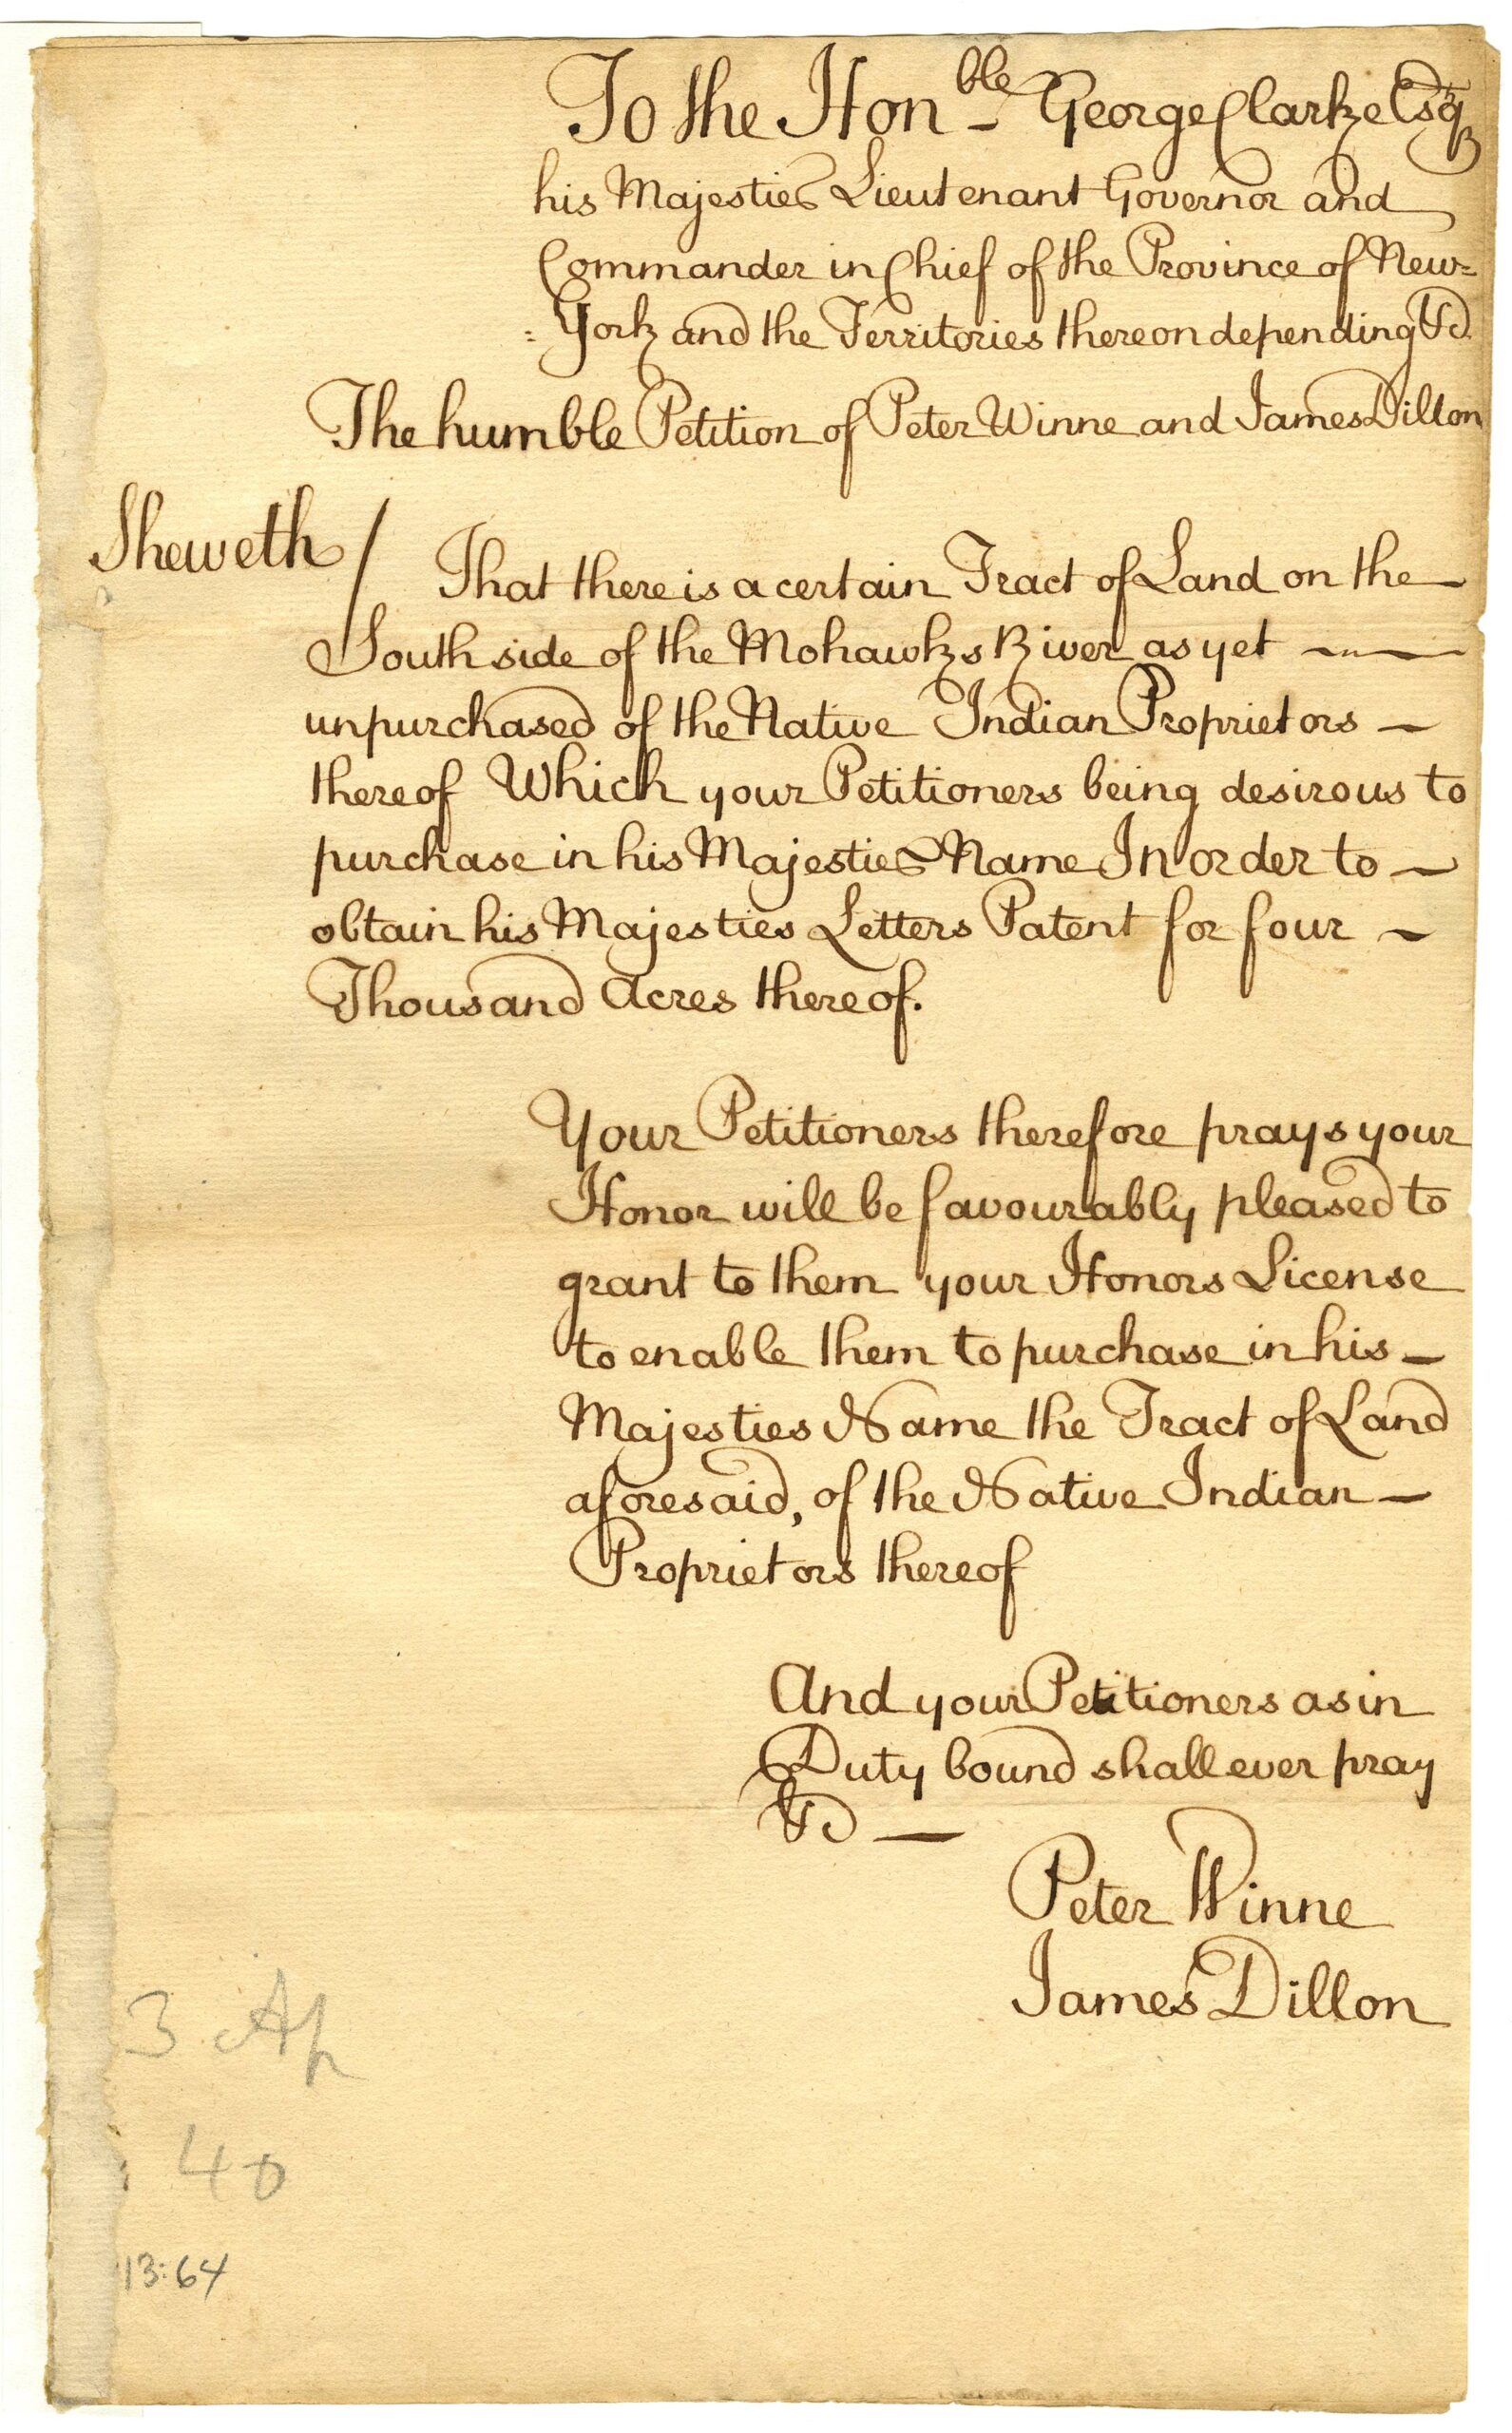 To the Honble George Clarke Esqr
his Majesties Lieutenant Governor and
Commander in Chief of the Province of New=
=York and the Territories thereon depending &c
The humble Petition of Peter Winne and James Dillon
Sheweth / That there is a certain Tract of Land on the
South side of the Mohawks River as yet
unpurchased of the Native Indian Proprietors
thereof Which your Petitioners being desirous to
purchase in his Majesties Name In order to
obtain his Majesties Letters Patent for four
Thousand Acres thereof.
Your Petitioners therefore prays your
Honor will be favourably pleased to
grant to them your Honors License
to enable them to purchase in his
Majesties Name the Tract of Land
aforesaid, of the Native Indian
Proprietors thereof
And your Petitioners as in
Duty bound shall ever pray
&c
Peter Winne
James Dillon
3 Ap
40
13:64